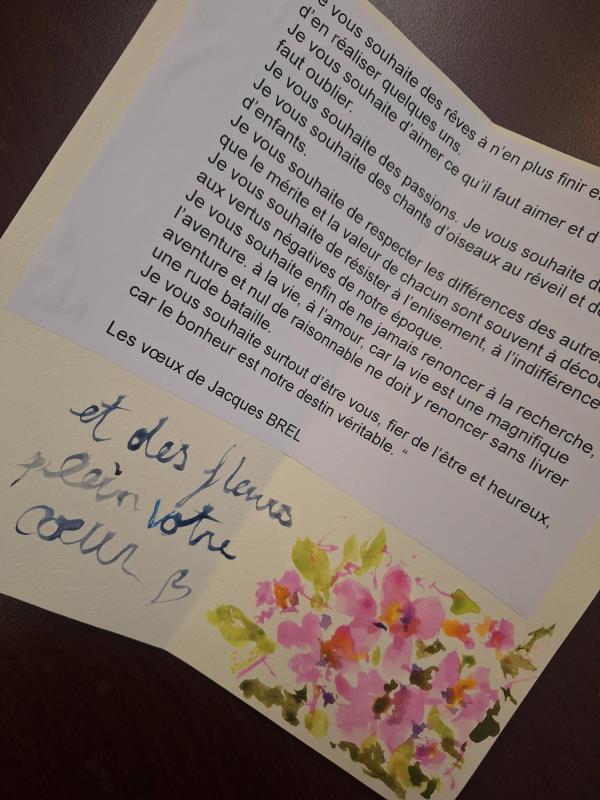 e vous souhaite des rêves à n'en plus finir et
d'en réaliser quelques uns.
Je vous souhaite d'aimer ce qu'il faut aimer et d
faut oublier.
Je vous souhaite des passions. Je vous souhaite de
Je vous souhaite des chants d'oiseaux au réveil et de
d'enfants.
Je vous souhaite de respecter les différences des autres
que le mérite et la valeur de chacun sont souvent à décou
Je vous souhaite de résister à l'enlisement, à l'indifférence
aux vertus négatives de notre époque.
Je vous souhaite enfin de ne jamais renoncer à la recherche,
l'aventure. à la vie, à l'amour, car la vie est une magnifique
aventure et nul de raisonnable ne doit y renoncer sans livrer
une rude bataille.
Je vous souhaite surtout d'être vous, fier de l'être et heureux,
car le bonheur est notre destin véritable. "
Les vœux de Jacques BREL
et des fleurs
plein votre
cœur B